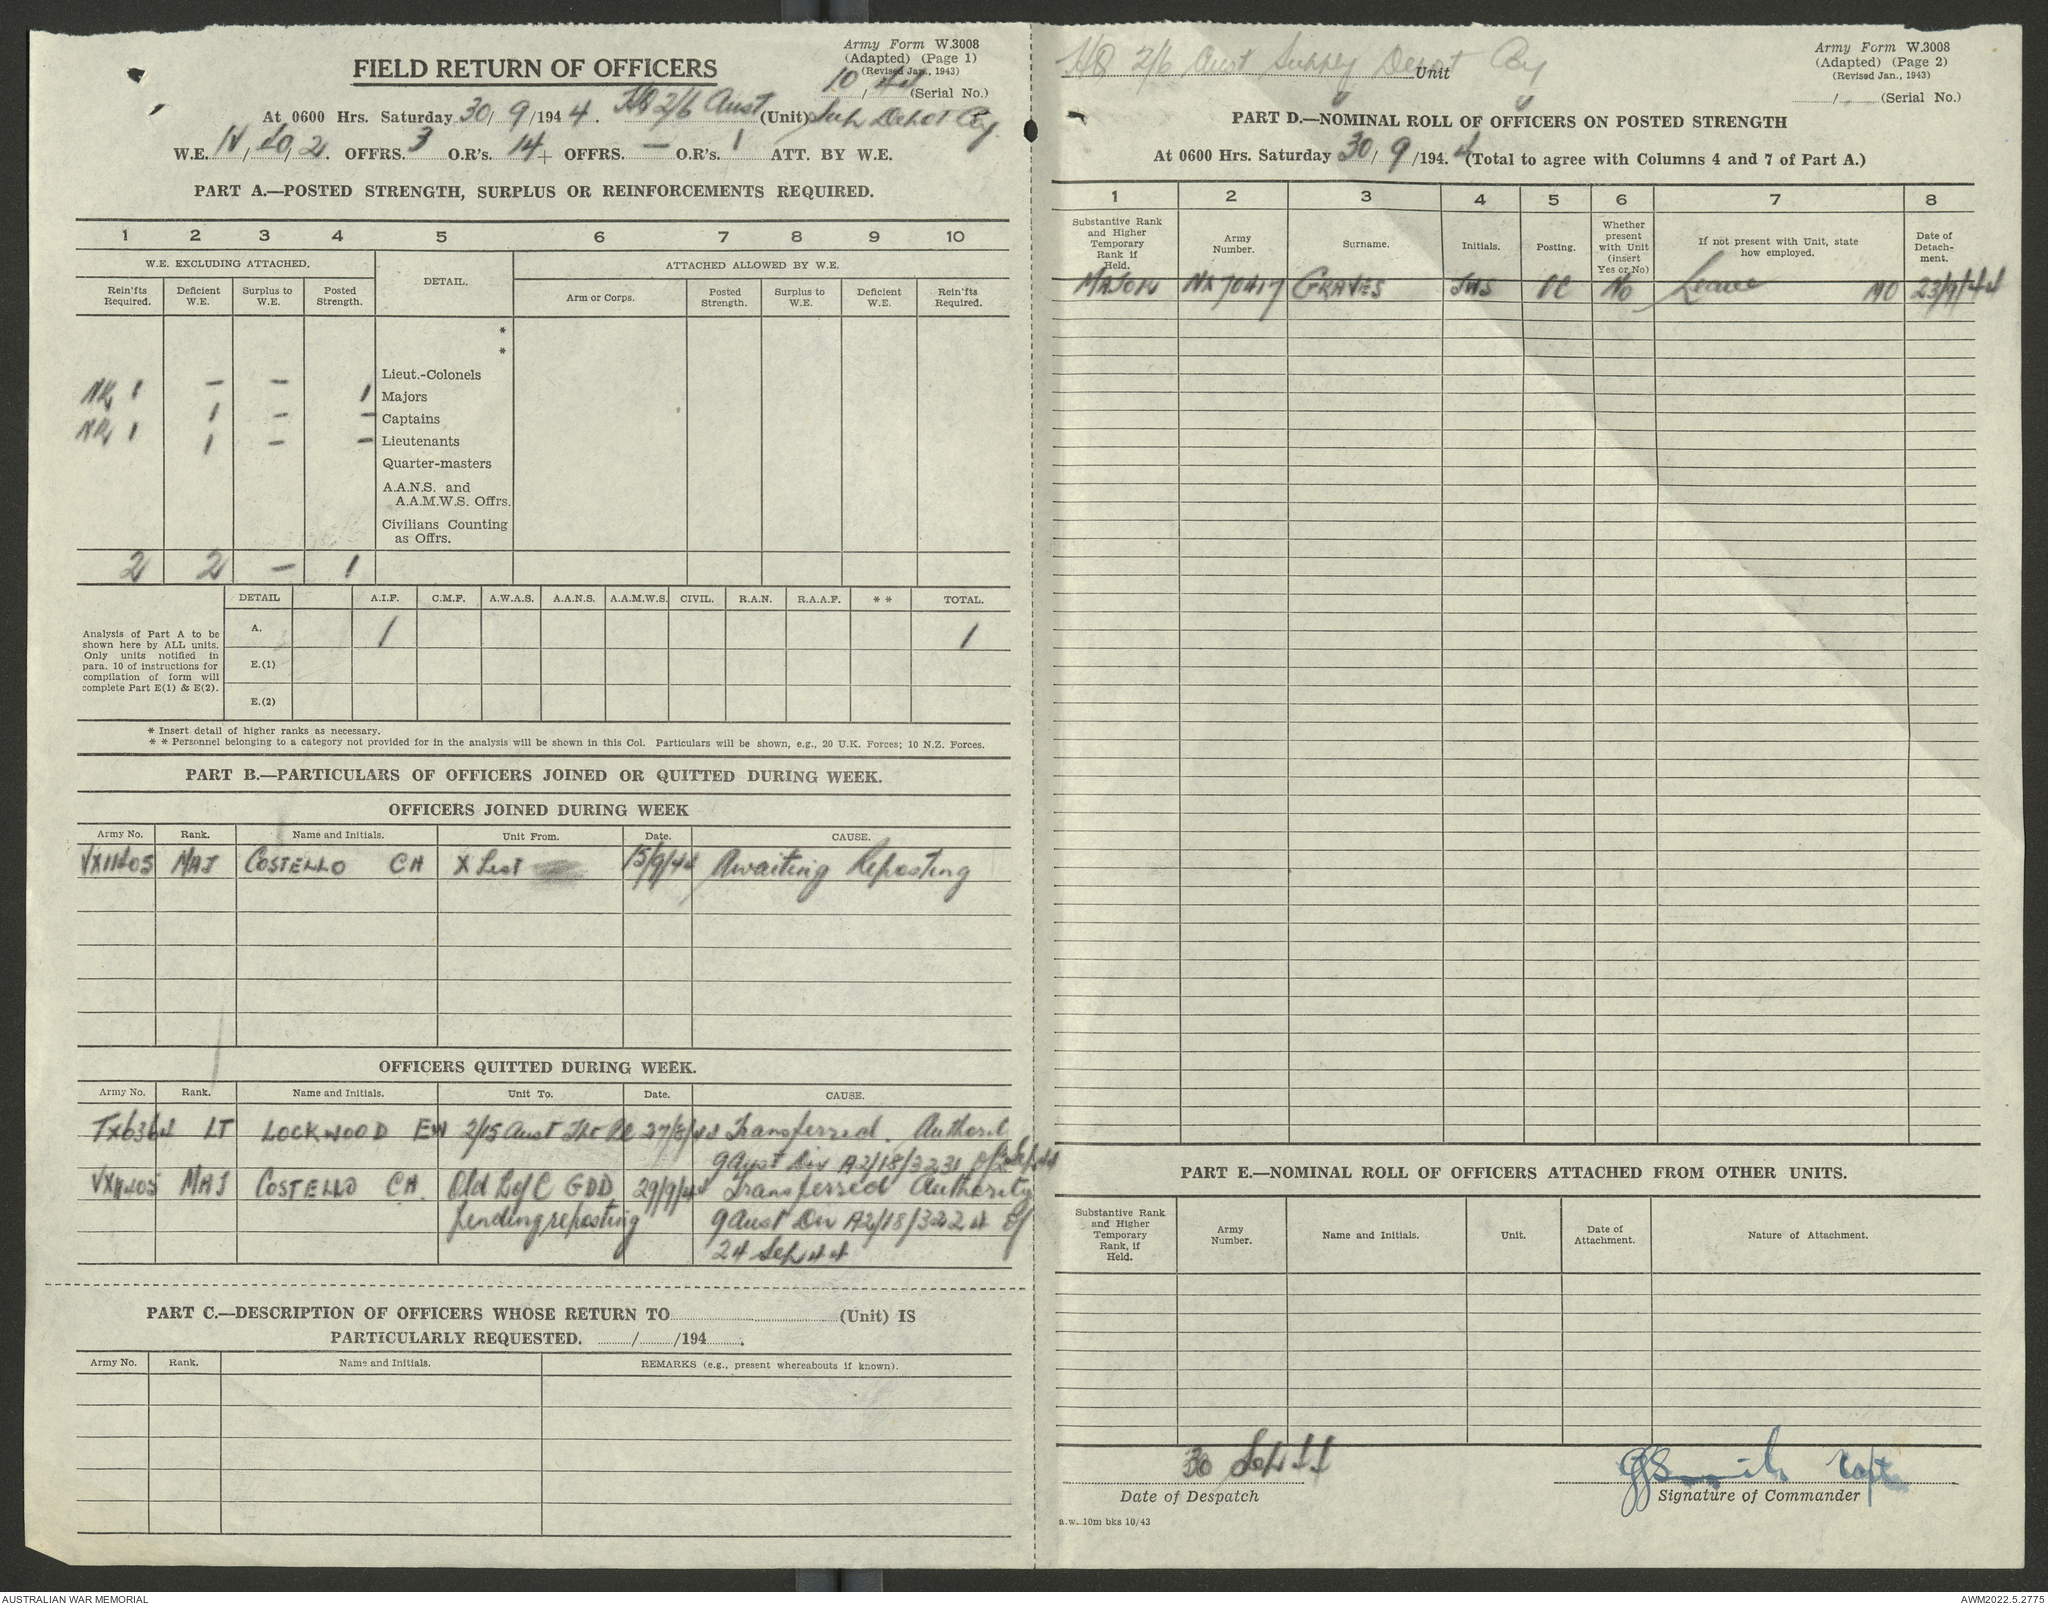 Army Form W.3008
(Adapted) (Page 1)
(Revised Jan., 1943)
FIELD RETURN OF OFFICERS
10 / 44 (Serial No.)
At 0600 Hrs. Saturday 30 / 9 /194 4. HQ 2/6 Aust (Unit) Sup Depot Coy.
W.E. IV / 40 / 2. OFFRS. 3 O.R's. 14 + OFFRS. — O.R's. 1 ATT. BY W.E.
PART A.—POSTED STRENGTH, SURPLUS OR REINFORCEMENTS REQUIRED.
1 2 3 4 5 6 7 8 9 10
W.E. EXCLUDING ATTACHED. DETAIL. ATTACHED ALLOWED BY W.E.
Rein'fts Required. Deficient W.E. Surplus to W.E. Posted Strength. Arm or Corps. Posted Strength. Surplus to W.E. Deficient W.E. Rein'fts Required.
*
*
Lieut.-Colonels
— — 1 Majors
NR 1 1 — — Captains
NR 1 1 — — Lieutenants
Quarter-masters
A.A.N.S. and
A.A.M.W.S. Offrs.
Civilians Counting
as Offrs.
2 2 — 1
DETAIL A.I.F. C.M.F. A.W.A.S. A.A.N.S. A.A.M.W.S. CIVIL. R.A.N. R.A.A.F. * * TOTAL.
Analysis of Part A to be
shown here by ALL units.
Only units notified in
para. 10 of instructions for
compilation of form will
complete Part E(1) & E(2).
A. 1 1
E.(1)
E.(2)
* Insert detail of higher ranks as necessary.
* * Personnel belonging to a category not provided for in the analysis will be shown in this Col. Particulars will be shown, e.g., 20 U.K. Forces; 10 N.Z. Forces.
PART B.—PARTICULARS OF OFFICERS JOINED OR QUITTED DURING WEEK.
OFFICERS JOINED DURING WEEK
Army No. Rank. Name and Initials. Unit From. Date. CAUSE.
VX11405 MAJ COSTELLO CH X List 15/9/44 Awaiting Reposting
OFFICERS QUITTED DURING WEEK.
Army No. Rank. Name and Initials. Unit To. Date. CAUSE.
TX6364 LT LOCKWOOD EW 2/15 Aust Tpt Pl 27/8/44 Transferred. Authority
9 Aust Div A2/18/3231 of Sep 44
VX11405 MAJ COSTELLO CH. Qld L of C GDD 29/9/44 Transferred Authority
pending reposting 9 Aust Div A2/18/3224 of
24 Sep 44
PART C.—DESCRIPTION OF OFFICERS WHOSE RETURN TO (Unit) IS
PARTICULARLY REQUESTED. / /194 .
Army No. Rank. Name and Initials. REMARKS (e.g., present whereabouts if known).
HQ 2/6 Aust Supply Depot Coy Unit
Army Form W.3008
(Adapted) (Page 2)
(Revised Jan., 1943)
/ (Serial No.)
PART D.—NOMINAL ROLL OF OFFICERS ON POSTED STRENGTH
At 0600 Hrs. Saturday 30 / 9 /194. 4 (Total to agree with Columns 4 and 7 of Part A.)
1 2 3 4 5 6 7 8
Substantive Rank and Higher Temporary Rank if Held. Army Number. Surname. Initials. Posting. Whether present with Unit (insert Yes or No) If not present with Unit, state how employed. Date of Detach-ment.
MAJOR NX70417 GRAVES JWS OC No Leave NO 23/9/44
PART E.—NOMINAL ROLL OF OFFICERS ATTACHED FROM OTHER UNITS.
Substantive Rank and Higher Temporary Rank, if Held. Army Number. Name and Initials. Unit. Date of Attachment. Nature of Attachment.
30 Sep 44
Date of Despatch
Smith Capt
Signature of Commander
a.w. 10m bks 10/43
AUSTRALIAN WAR MEMORIAL
AWM2022.5.2775